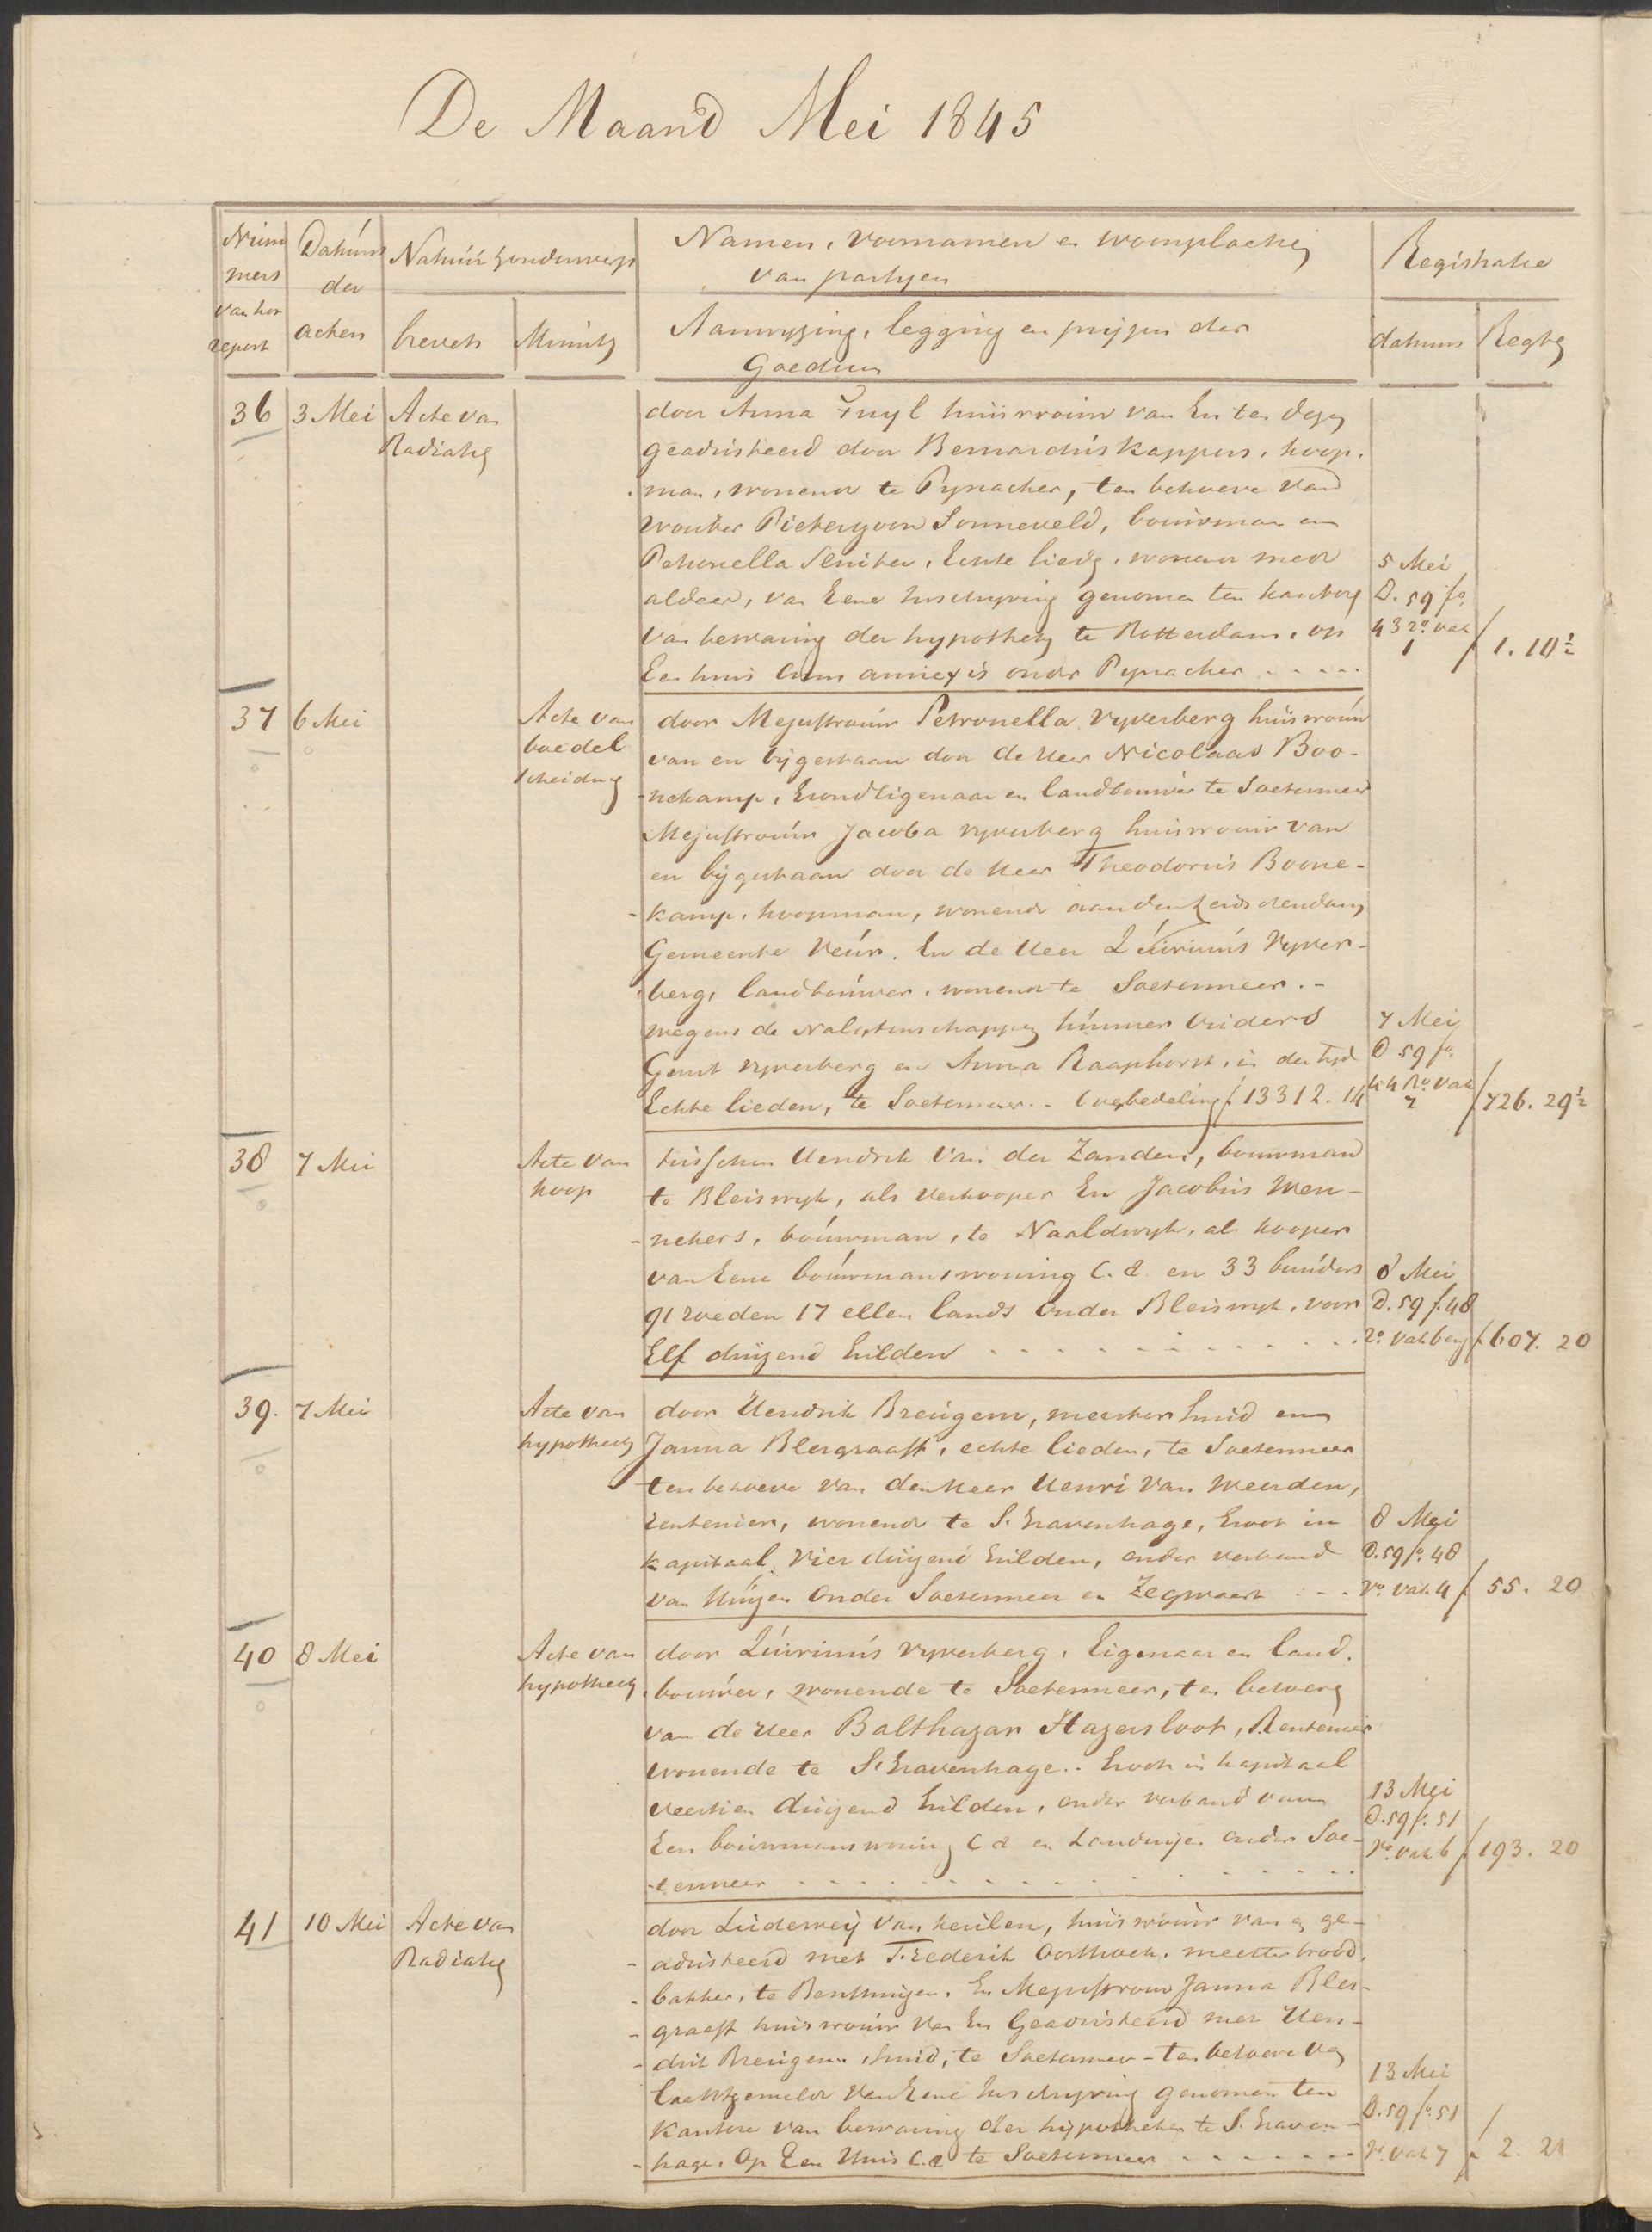 De Maand Mei 1845
Num
mers
van het
repert
Datums
der
acten
Natuur & onderwerp
brevets
Minuts
Namen, voornamen en woonplaatsen
van partyen
Aanwyzing, legging en pryzen der
Goederen
Registratie
datums
Regten
36
3 Mei
Acte van
Radiatie
door Anna Zuyl huisvrouw van En ten dezen
geadsisteerd door Bernardus Kappers, koop-
man, wonende te Pynacker, ten behoeve van
Wouter Pieterszoon Sonneveld, bouwman en
Petronella Sluiter, Echte lieden, wonende mede
aldaar, van Eene Inschryving genomen ten kantore
van bewaring der hypotheken te Rotterdam, op
Een huis Cum annexis onder Pynacker .....
5 Mei
D. 59 fo.
43 ro. vak
1
f 1. 10½
37
6 Mei
Acte van
boedel
scheiding
door Mejuffrouw Petronella Vyverberg huisvrouw
van en bijgestaan door de Heer Nicolaas Boo-
nekamp, Grondeigenaar en landbouwer te Soetermeer
Mejuffrouw Jacoba Vyverberg huisvrouw van
en bijgestaan door de Heer Theodorus Boone-
kamp, koopman, wonende aan den Leidschendam
Gemeente Veur. En de Heer Quirinus Vyver-
berg, landbouwer, wonende te Soetermeer. -
wegens de Nalatenschappen hunner Ouders
Gerrit Vyverberg en Anna Raaphorst, in der tyd
Echte lieden, te Soetermeer. - Overbedeling f 13312. 14
7 Mei
D 59 fo.
44 Ro. vak
7
f 726. 29½
38
7 Mei
Acte van
koop
tusschen Hendrik van der Zanden, bouwman
te Bleiswyk, als verkooper En Jacobus Wen-
nekers, bouwman, te Naaldwyk, als kooper
van Eene bouwmanswoning C. a. en 33 bunders
91 roeden 17 ellen lands onder Bleiswyk, voor
Elf duizend Gulden . . . . . . . . . . . .
8 Mei
D. 59 f. 48
ro. vak 6 en 7
f 607. 20
39.
7 Mei
Acte van
hypotheek
door Hendrik Breugem, meester Smid en
Janna Blesgraaft, echte lieden, te Soetermeer
ten behoeve van den Heer Henri van Meerden,
rentenier, wonende te S. Gravenhage, Groot in
kapitaal vier duizend Gulden, onder verband
van Huizen onder Soetermeer en Zegwaart . - - .
8 Mei
D. 59 fo. 48
Vo. vak 4
f 55. 20
40
8 Mei
Acte van
hypotheek
door Quirinus Vyverberg, Eigenaar en land-
bouwer, wonende te Soetermeer, ten behoeve
van de Heer Balthazar Hazersloot, Rentenier
wonende te S. Gravenhage. . Groot in kapitaal
veertien duizend Gulden, onder verband van
Een bouwmanswoning C a en Landeryen onder Soe-
termeer . . . . . . . . . . . . . .
13 Mei
D. 59 f. 51
ro. vak 6
f 193. 20
41
10 Mei
Acte van
Radiatie
door Ludewey van Keulen, huisvrouw van en ge-
adsisteerd met Frederik Oosthoek, meester brood-
bakker, te Benthuizen, En Mejuffrouw Janna Bles-
graaft huisvrouw van En Geadsisteerd met Hen-
drik Breugem, Smid, te Soetermeer - ten behoeve van
laatstgemelde van Eene Inschryving genomen ten
Kantore van bewaring der hypotheken te S. Graven-
hage, Op Een Huis C. a te Soetermeer . . . . . . .
13 Mei
D. 59 fo. 51
Vo. vak 7
f 2. 21